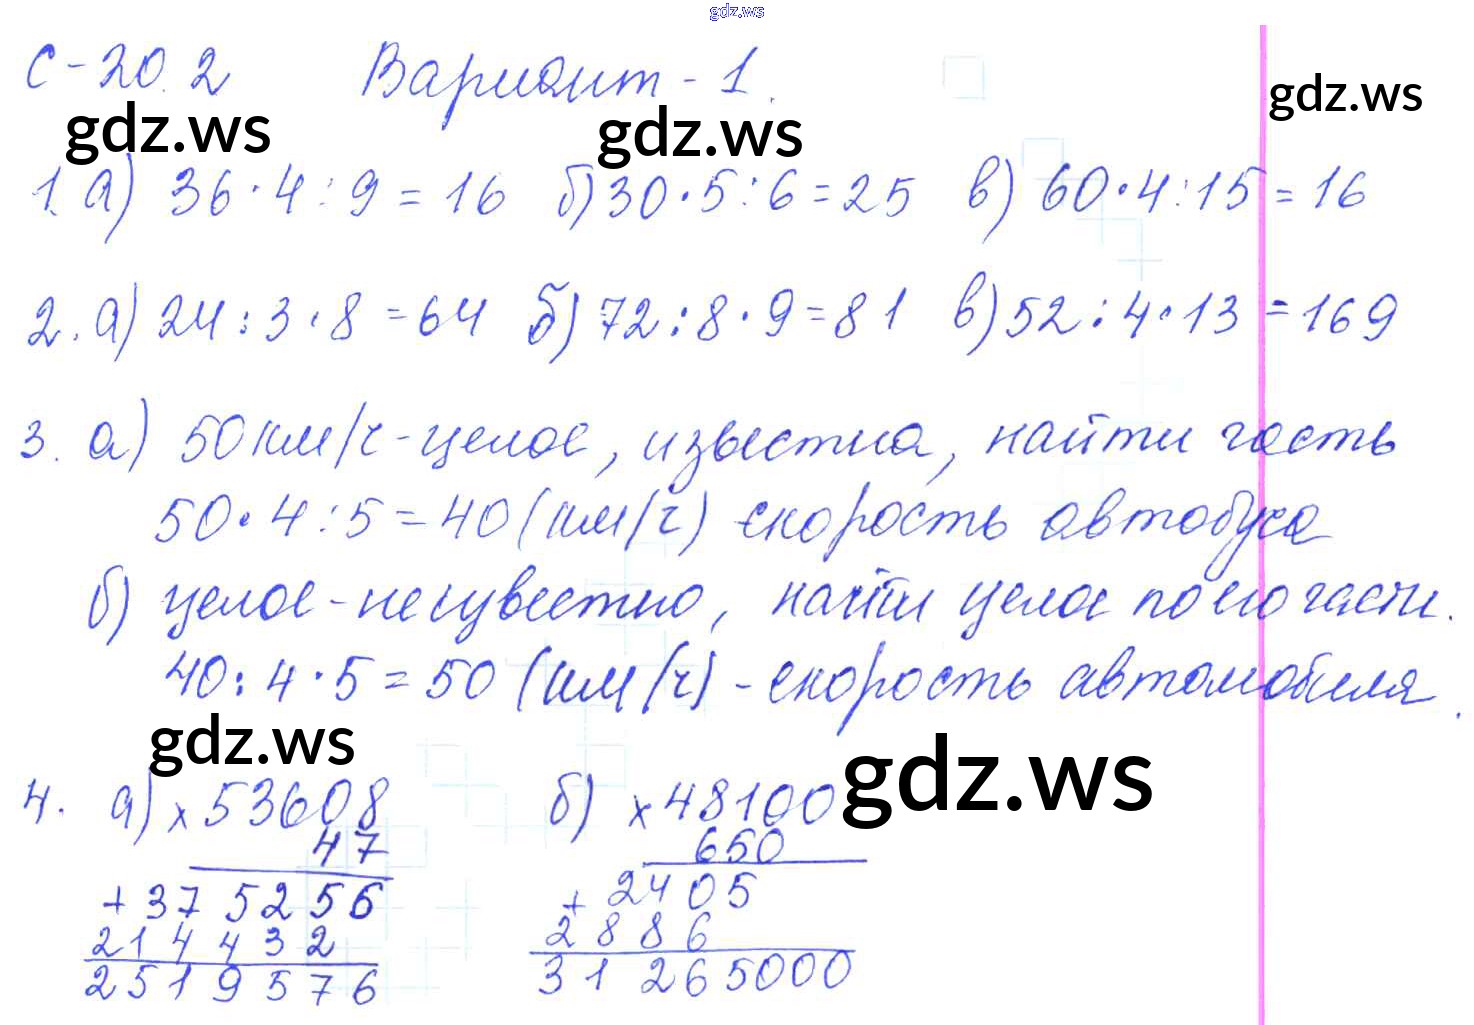 gdz.ws
С-20.2 Вариант-1.
gdz.ws gdz.ws gdz.ws
1. а) 36·4:9=16 б) 30·5:6=25 в) 60·4:15=16
2. а) 24:3·8=64 б) 72:8·9=81 в) 52:4·13=169
3. а) 50 км/ч-целое, известна, найти часть
50·4:5=40 (км/ч) скорость автобуса
б) целое-неизвестно, найти целое по его части.
40:4·5=50 (км/ч)-скорость автомобиля.
gdz.ws gdz.ws
4. а) х53608 б) х48100
47 650
+375256 +2405
214432 2886
2519576 31265000